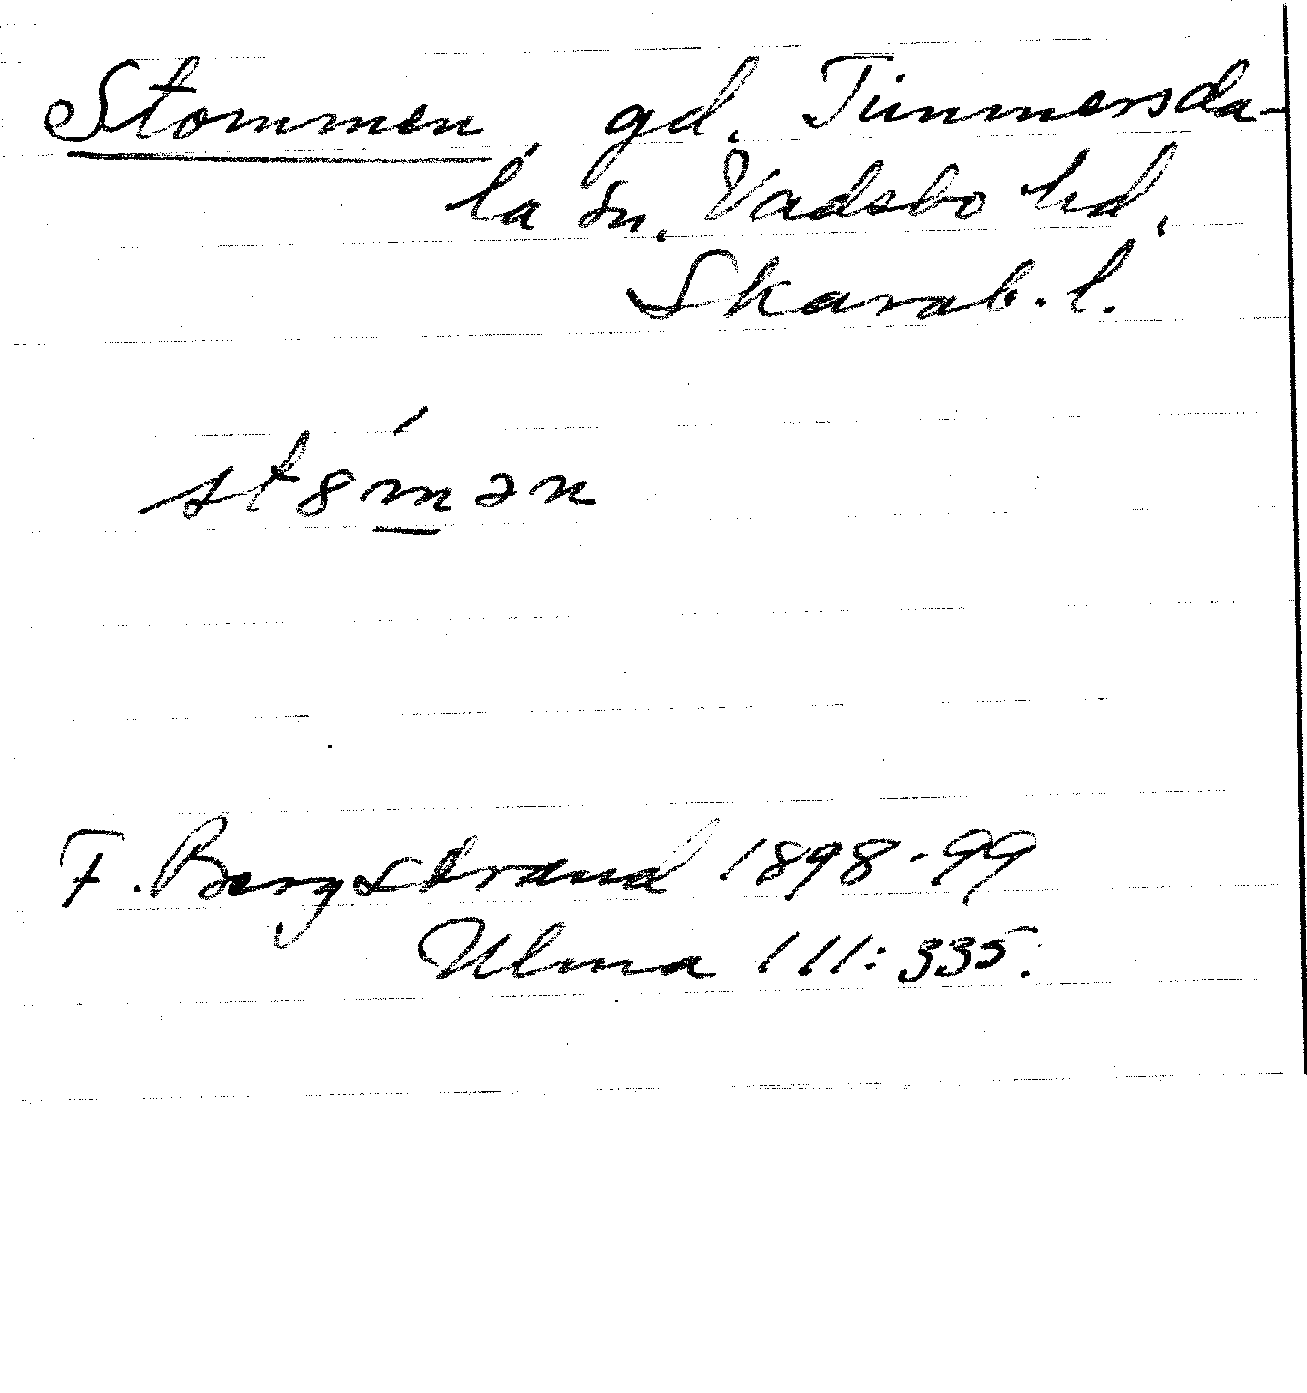 Stommen, gd. Timmersda-
la sn. Vadsbo hd,
Skarab. l.
st8mən
F. Bergstrand 1898-99
Ulma 111:335.